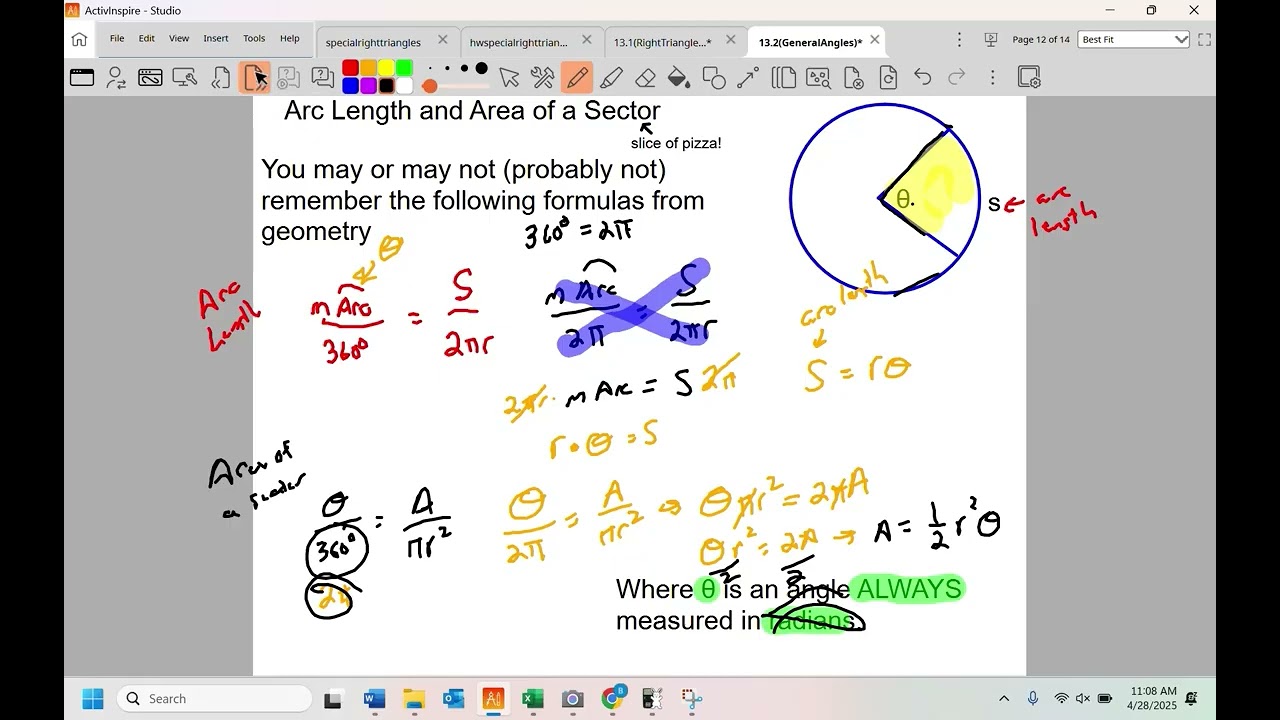 ActivInspire - Studio
File Edit View Insert Tools Help
specialrighttriangles
hwspecialrighttrian...
13.1(RightTriangle...*
13.2(GeneralAngles)*
Page 12 of 14
Best Fit
Arc Length and Area of a Sector
slice of pizza!
You may or may not (probably not)
remember the following formulas from
geometry
360° = 2π
θ.
s ← arc length
θ
Arc Length
m Arc / 360° = S / 2πr
m Arc / 2π = S / 2πr
2πr · m Arc = S 2π
r • θ = S
arc length
S = rθ
Area of a Sector
θ / 360° = A / πr²
2π
θ / 2π = A / πr² → θπr² = 2πA
θr² / 2 = 2A / 2 → A = 1/2 r² θ
Where θ is an angle ALWAYS
measured in radians.
Search
11:08 AM
4/28/2025